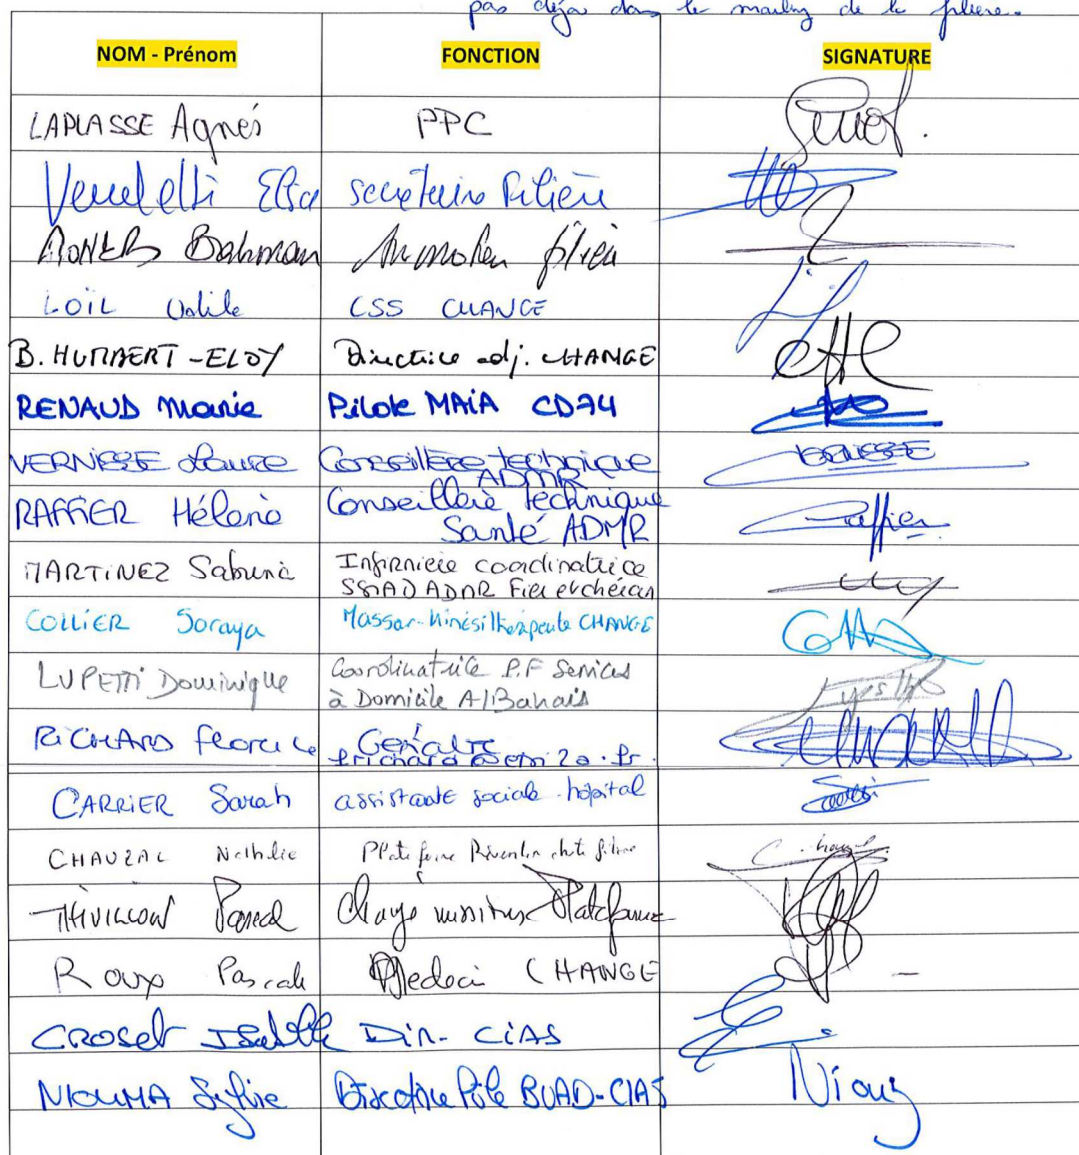 pas déjà dans le mailing de la filière.
NOM - Prénom FONCTION SIGNATURE
LAPLASSE Agnés PPC
Vendetti Elsa secretaire Filière
Bahman filière
LOÏL CSS CHANGE
B. HUMBERT-ELOY Directrice adj. CHANGE
RENAUD Marie Pilote MAiA CD74
VERNIESSE Laure Conseillère technique
ADMR
RAFFIER Hélène Conseillère technique
Santé ADMR Raffier
MARTINEZ Sabrina Infirmière coordinatrice
SSIAD ADMR Fier et chéran
COLLIER Soraya Masseur-kinésithérapeute CHANGE
LUPETTI Dominique Coordinatrice P.F Services
à Domicile
RICHARD Florence Gériatre
CARRIER Sarah assistante sociale hôpital
CHAUZAC Nathalie Plateforme Prévention chute filière
THÉVILLON Pascal Chargé missions Plateforme
Roux Pascale Medecin CHANGE
CROSET Isabelle Dir. CIAS
NIOUMA Sylvie Directrice Pôle BVAD-CIAS Niouj